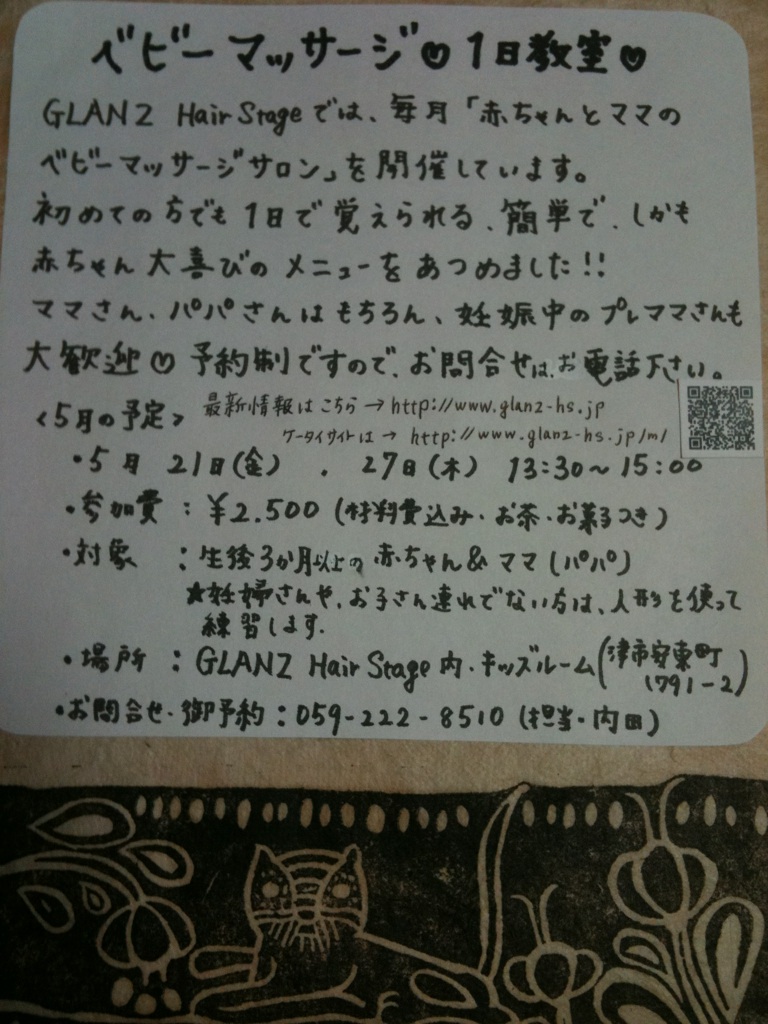 ベビーマッサージ♡1日教室♡
GLANZ Hair Stageでは、毎月「赤ちゃんとママの
ベビーマッサージサロン」を開催しています。
初めての方でも1日で覚えられる、簡単で、しかも
赤ちゃん大喜びのメニューをあつめました!!
ママさん、パパさんはもちろん、妊娠中のプレママさんも
大歓迎♡予約制ですので、お問合せは、お電話下さい。
<5月の予定> 最新情報はこちら→http://www.glanz-hs.jp
ケータイサイトは→ http://www.glanz-hs.jp/m/
・5月 21日(金) . 27日(木) 13:30~15:00
・参加費:¥2.500(材料費込み・お茶・お菓子つき)
・対象 :生後3か月以上の赤ちゃん&ママ(パパ)
★妊婦さんや、お子さん連れでない方は、人形を使って
練習します.
・場所 :GLANZ Hair Stage内・キッズルーム(津市安東町
1791-2)
・お問合せ・御予約:059-222-8510(担当・内田)